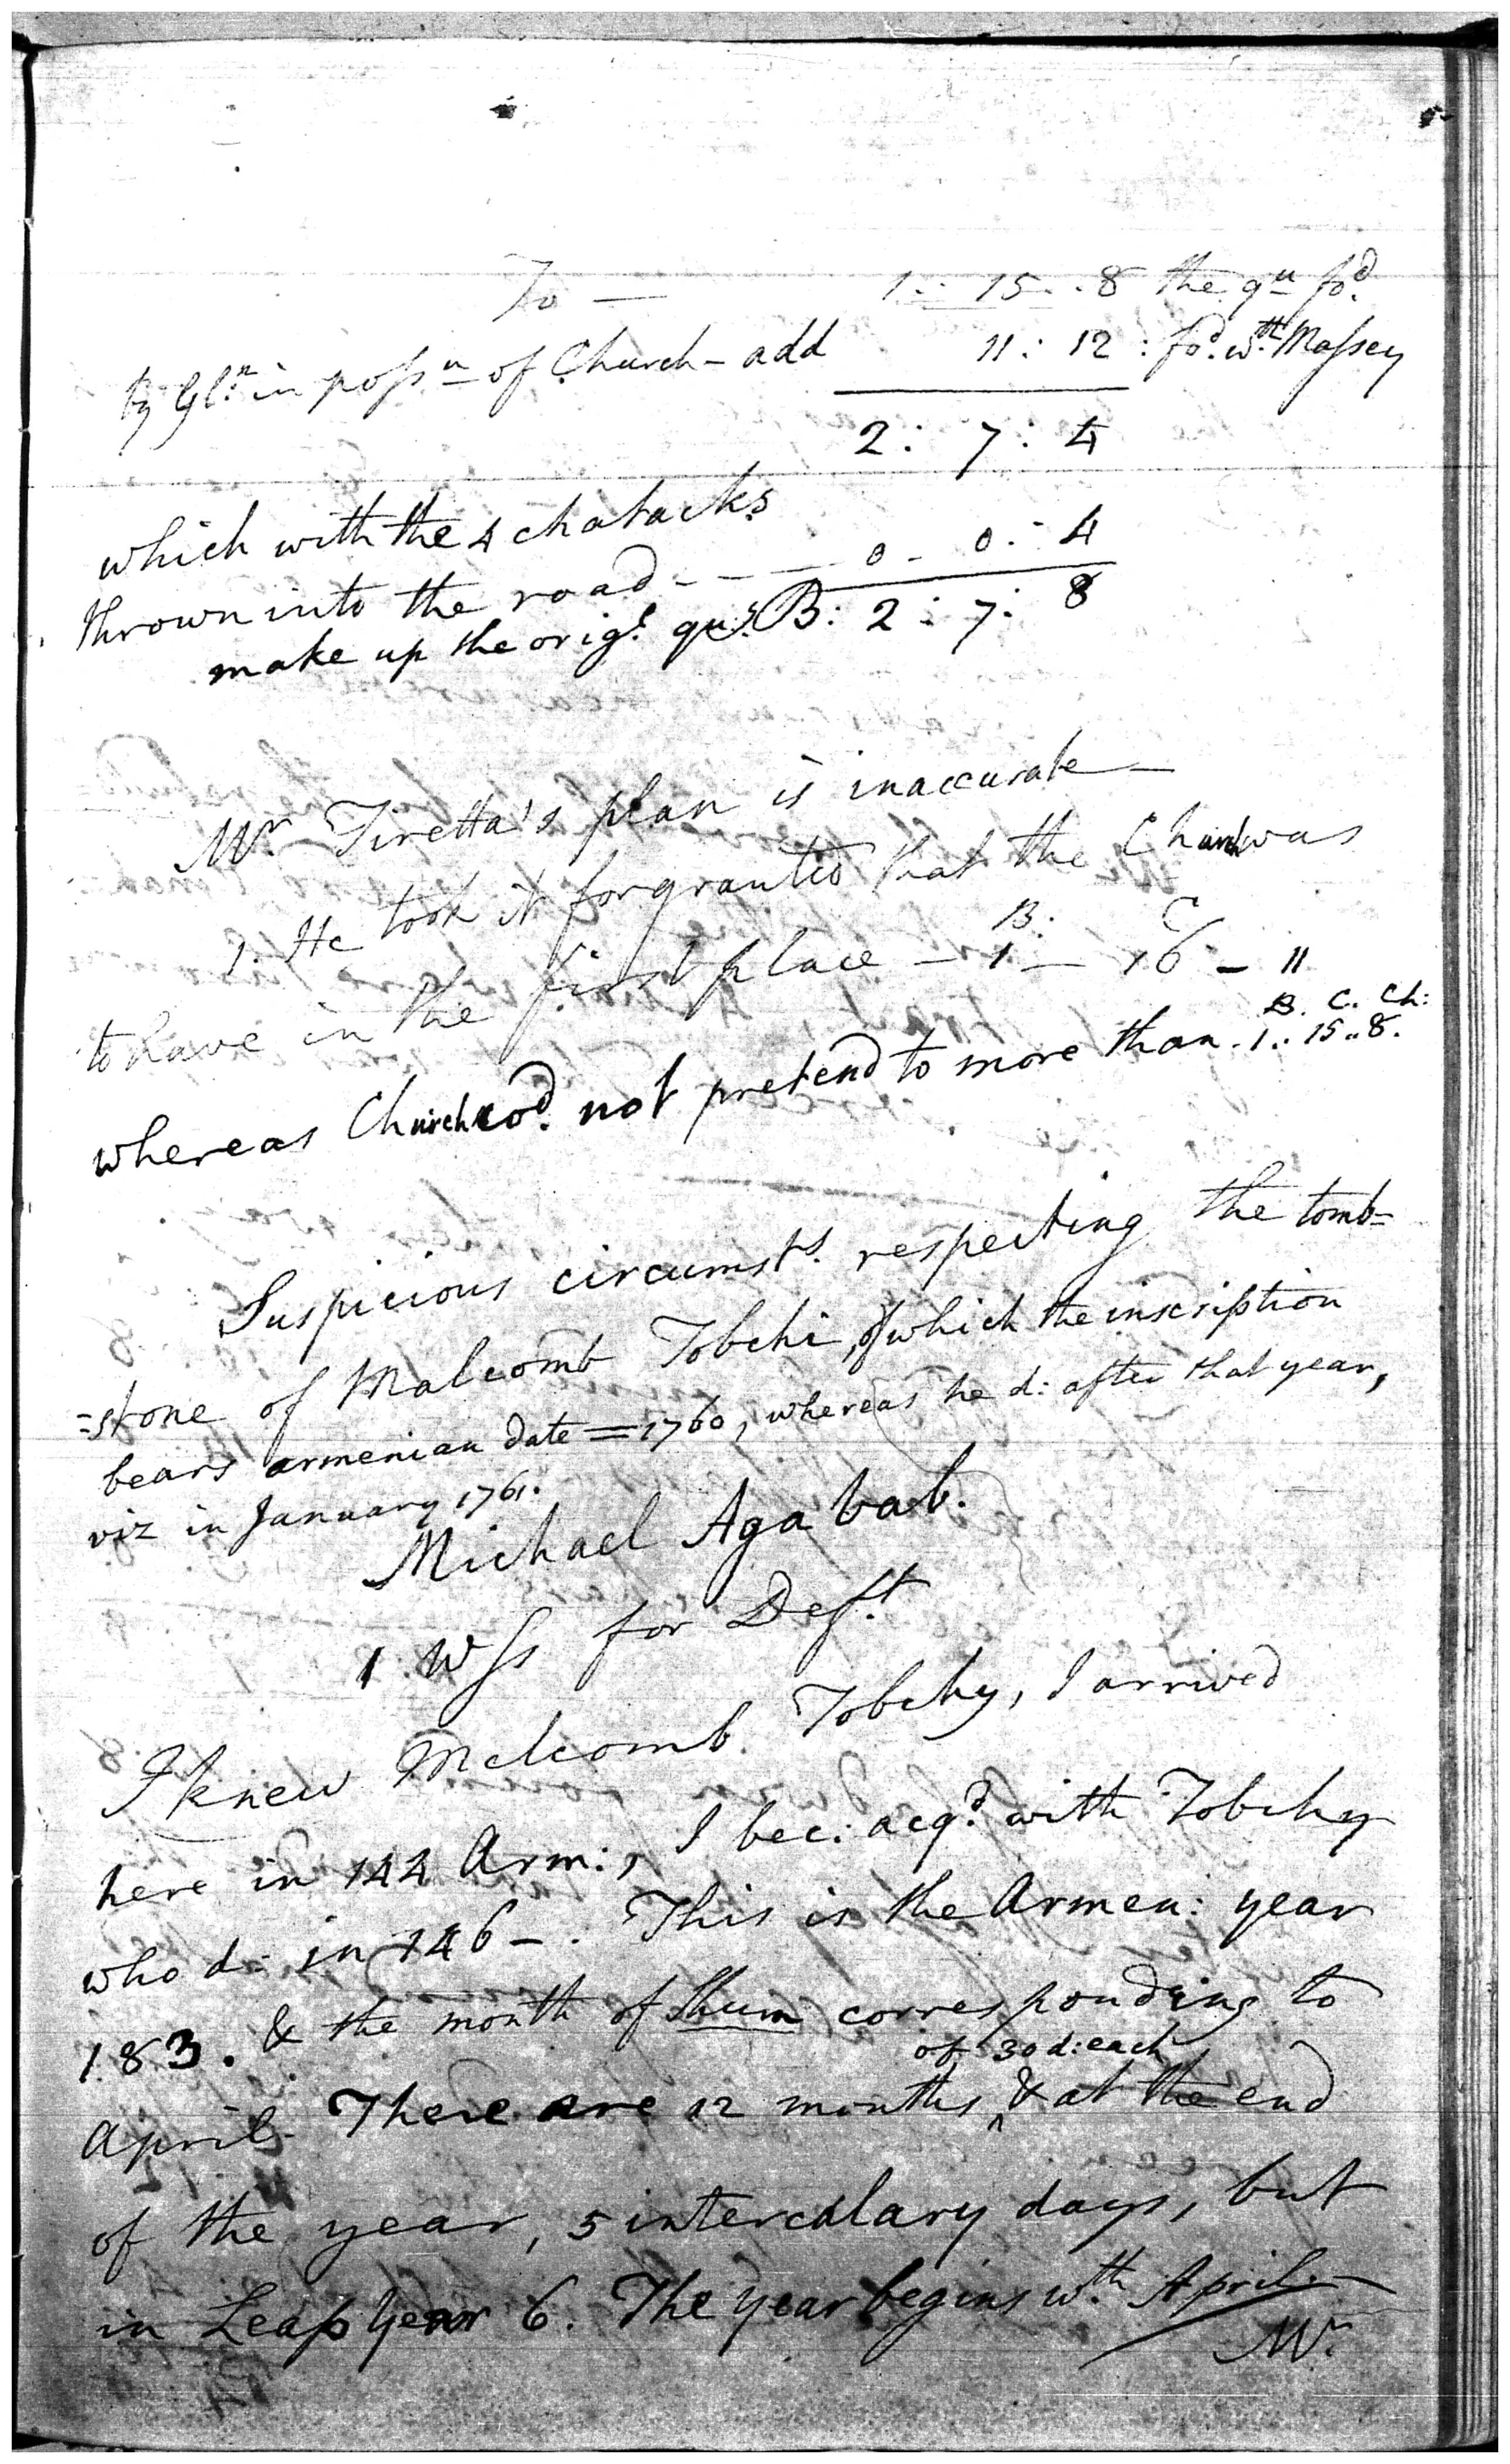 To — 1 .. 15 .. 8 the qu fod.
By Gl:n in possn of Church - add 11 : 12 : fod. wth Massey
2 : 7 : 4
which with the 4 chatacks
thrown into the road - - - 0 - 0 : 4
make up the origl. qu: B: 2 : 7 : 8
Mr Tiretta's plan is inaccurate —
1. He took it for granted that the Church was
B: C
to have in the first place — 1 — 16 — 11
B. C. Ch:
whereas Church cod. not pretend to more than. 1 .. 15 .. 8.
Suspicious circumsts. respecting the tomb=
=stone of Malcomb Tobchi, of which the inscription
bears armenian date = 1760, whereas he d: after that year,
viz in January 1761.
Michael Aga bab.
1 Wss for Deft
I knew Melcomb Tobchy, I arrived
here in 144 Arm:, I bec: acqd. with Tobchy
who d: in 146 - . This is the Armen: year
183. & the month of Shum corresponding to
of 30 d: each
April. There are 12 months ^ & at the end
of the year, 5 intercalary days, but
in Leap Year 6. The year begins wth. April. —
Mr.